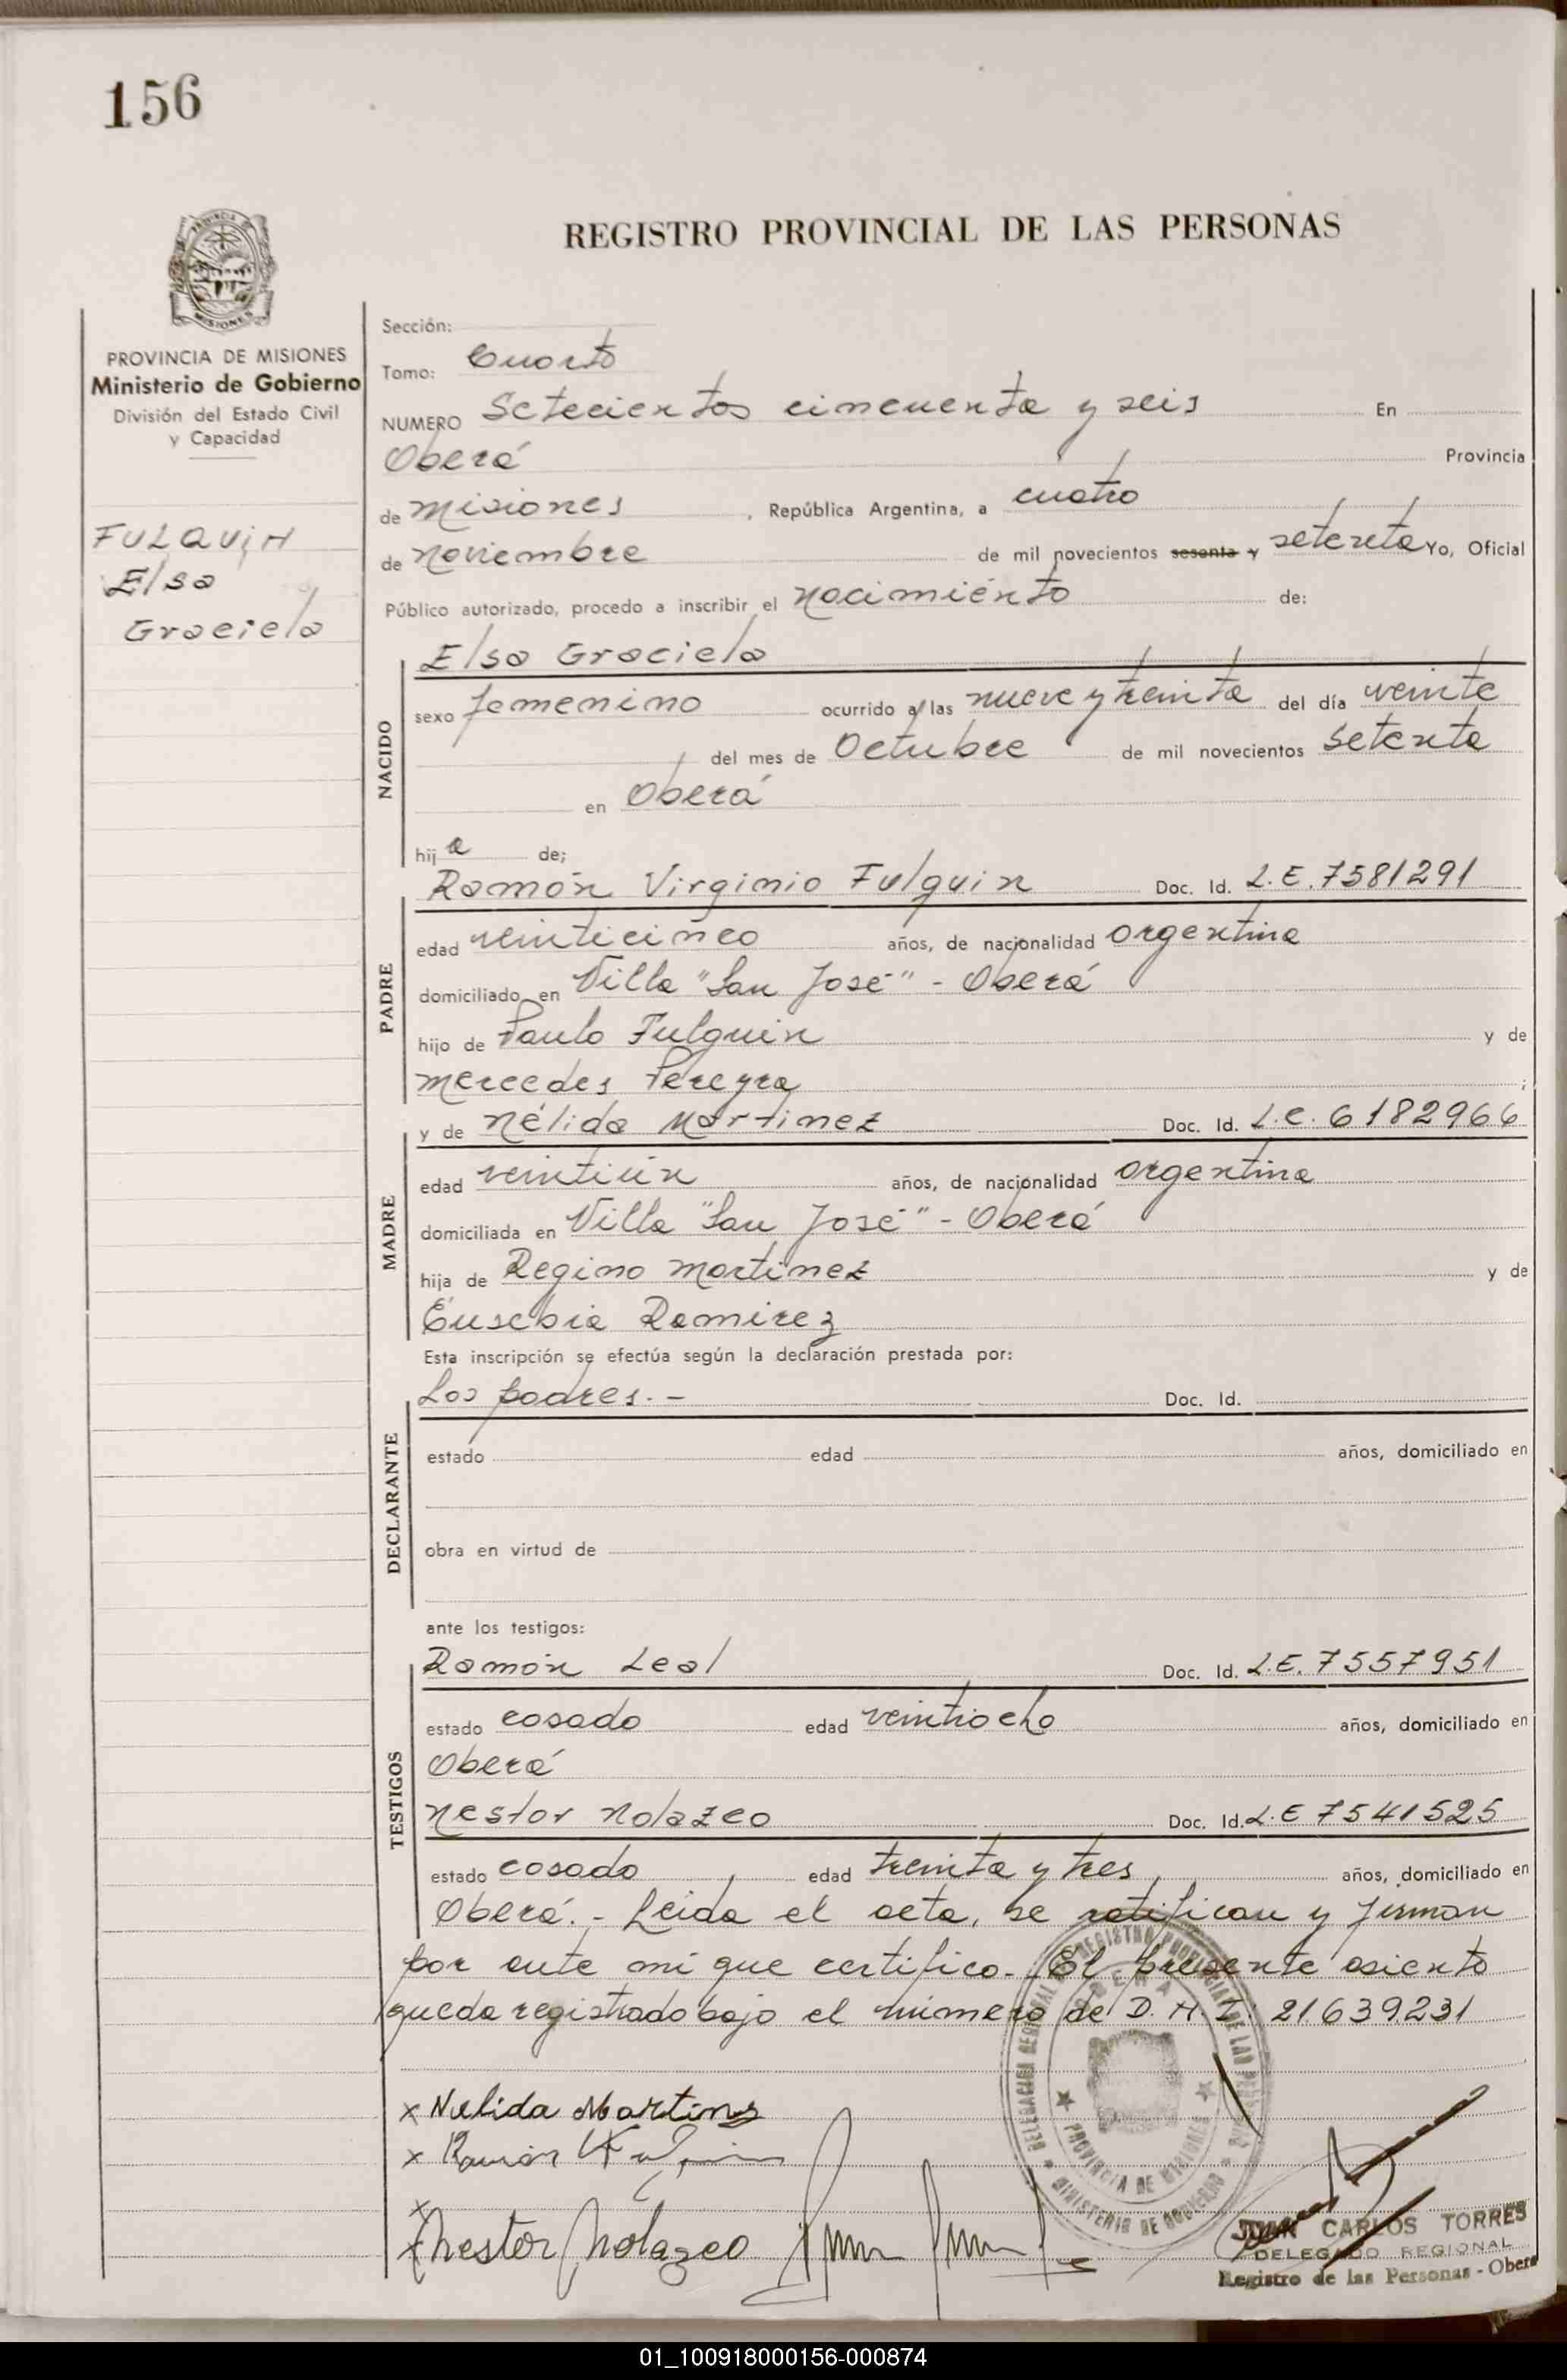 156
PROVINCIA DE MISIONES
Ministerio de Gobierno
División del Estado Civil
y Capacidad
FULQUiN
Elsa
Graciela
REGISTRO PROVINCIAL DE LAS PERSONAS
Sección:
Tomo: Cuarto
NUMERO Setecientos cincuenta y seis En
Oberá Provincia
de Misiones, República Argentina, a cuatro
de noviembre de mil novecientos sesenta y setenta Yo, Oficial
Público autorizado, procedo a inscribir el nacimiento de:
Elsa Graciela
NACIDO
sexo femenino ocurrido a las nueve y treinta del día veinte
del mes de Octubre de mil novecientos setenta
en Oberá
hija de;
Ramón Virginio Fulquin Doc. Id. L.E. 7581291
PADRE
edad veinticinco años, de nacionalidad argentina
domiciliado en Villa "San José" - Oberá
hijo de Paulo Fulquin y de
Mercedes Pereyra;
y de Nélida Martinez Doc. Id. L.C. 6182966
MADRE
edad veintiún años, de nacionalidad argentina
domiciliada en Villa "San José" - Oberá
hija de Regino Martinez y de
Eusebia Ramirez
Esta inscripción se efectúa según la declaración prestada por:
Los padres.- Doc. Id.
DECLARANTE
estado edad años, domiciliado en
obra en virtud de
ante los testigos:
Ramón Leal Doc. Id. L.E. 7557951
TESTIGOS
estado casado edad veintiocho años, domiciliado en
Oberá
Nestor Nolazco Doc. Id. L.E 7541525
estado casado edad treinta y tres años, domiciliado en
Oberá.- Leida el acta, se ratifican y firman
por ante mi que certifico.- El presente asiento
queda registrado bajo el número de D.N.I: 21.639.231
x Nelida Martines
x Ramón
x
x Nestor Nolazco
DELEGACION REGIONAL REGISTRO PROVINCIAL DE LAS PERSONAS
OBERA
PROVINCIA DE MISIONES
MINISTERIO DE GOBIERNO
JUAN CARLOS TORRES
DELEGADO REGIONAL
Registro de las Personas - Oberá
01_100918000156-000874